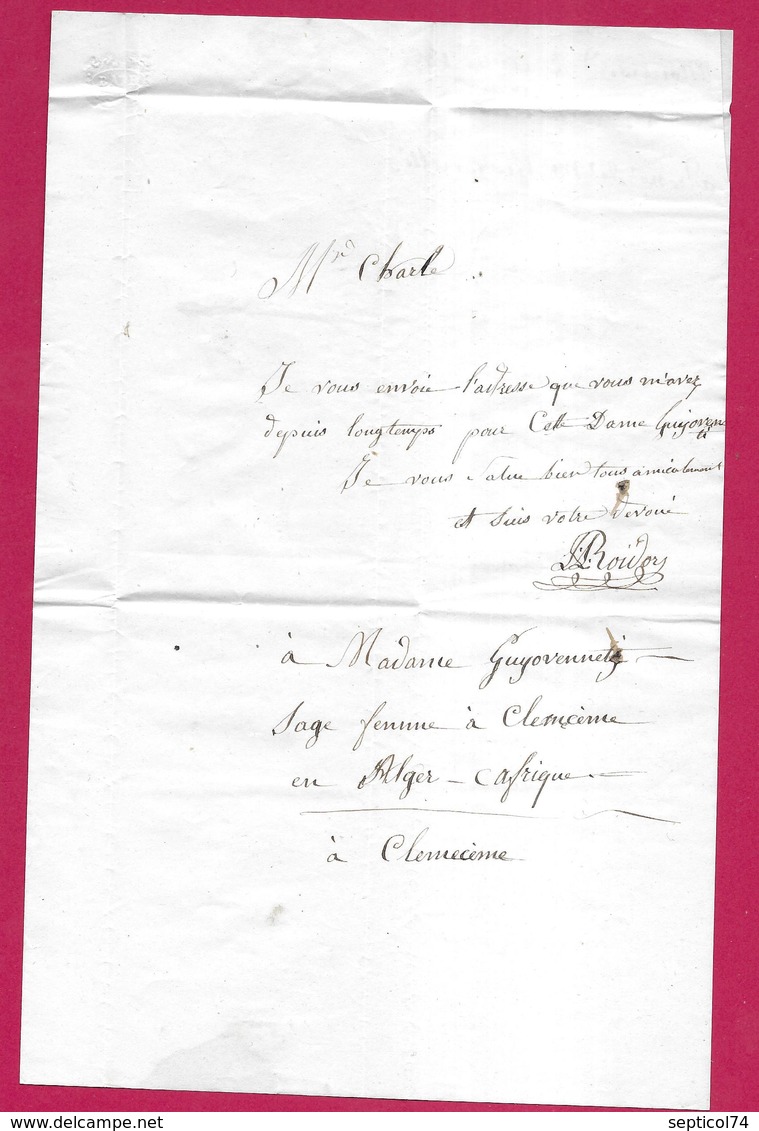 Mr Charle
Je vous envoie l'adresse que vous m'avez
depuis longtemps pour Cette Dame Guyovenne
Je vous salue bien tous amicalement
et suis votre devoué
Roidor
à Madame Guyovennetz
sage femme à Clemcème
en Alger - Cafrique
à Clemecème
septicol74